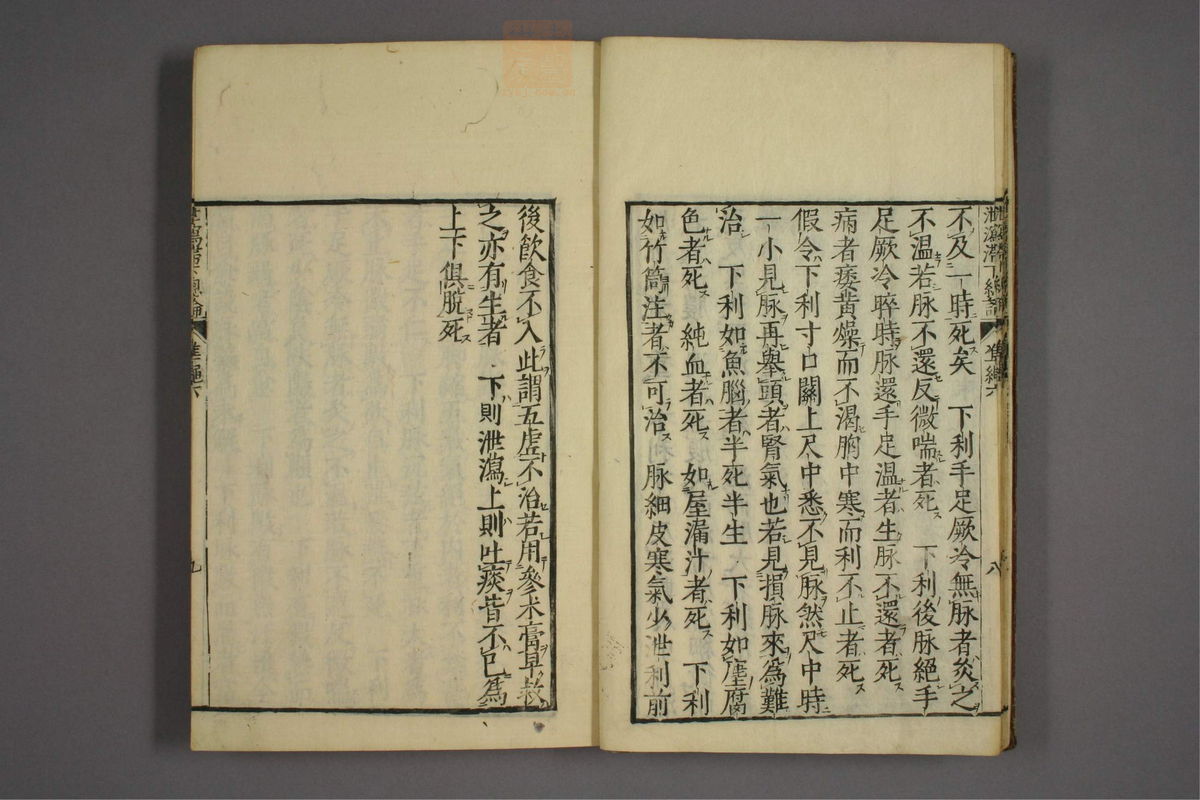 不及一時死矣　下利手足厥冷無脉者灸之
不温若脉不還反微喘者死　下利後脉絶手
足厥冷晬時脉還手足温者生脉不還者死
病者痿黄燥而不渴胸中寒而利不止者死
假令下利寸口關上尺中悉不見脉然尺中時
一小見脉再舉頭者腎氣也若見損脉來爲難
治　下利如魚腦者半死半生　下利如塵腐
色者死　純血者死　如屋漏汁者死　下利
如竹筒注者不可治　脉細皮寒氣少泄利前
後飲食不入此謂五虚不治若用參术膏早救
之亦有生者　下則泄瀉上則吐痰皆不已爲
上下俱脱死
八
九